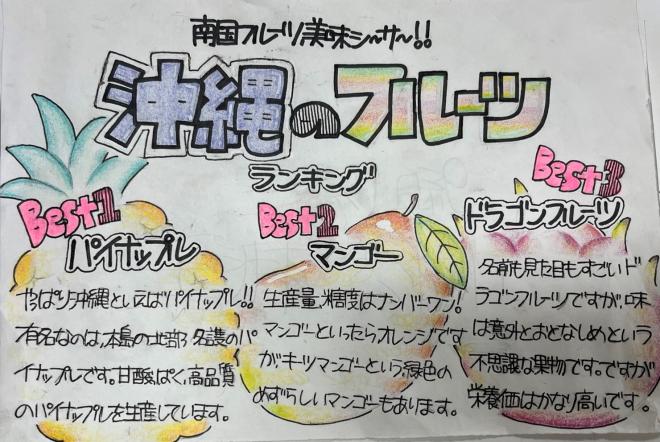 南国フルーツ美味シ〜サ〜!!
沖縄のフルーツ
ランキング
Best1
パイナップル
やっぱり沖縄といえばパイナップル!!
有名なのは、本島の北部、名護のパ
イナップルです。甘酸っぱく、高品質
のパイナップルを生産しています。
Best2
マンゴー
生産量、糖度はナンバーワン!
マンゴーといったらオレンジです
が、キーツマンゴーという緑色の
めずらしいマンゴーもあります。
Best3
ドラゴンフルーツ
名前も見た目もすごいド
ラゴンフルーツですが、味
は意外とおとなしめという
不思議な果物です。ですが
栄養価はかなり高いです。